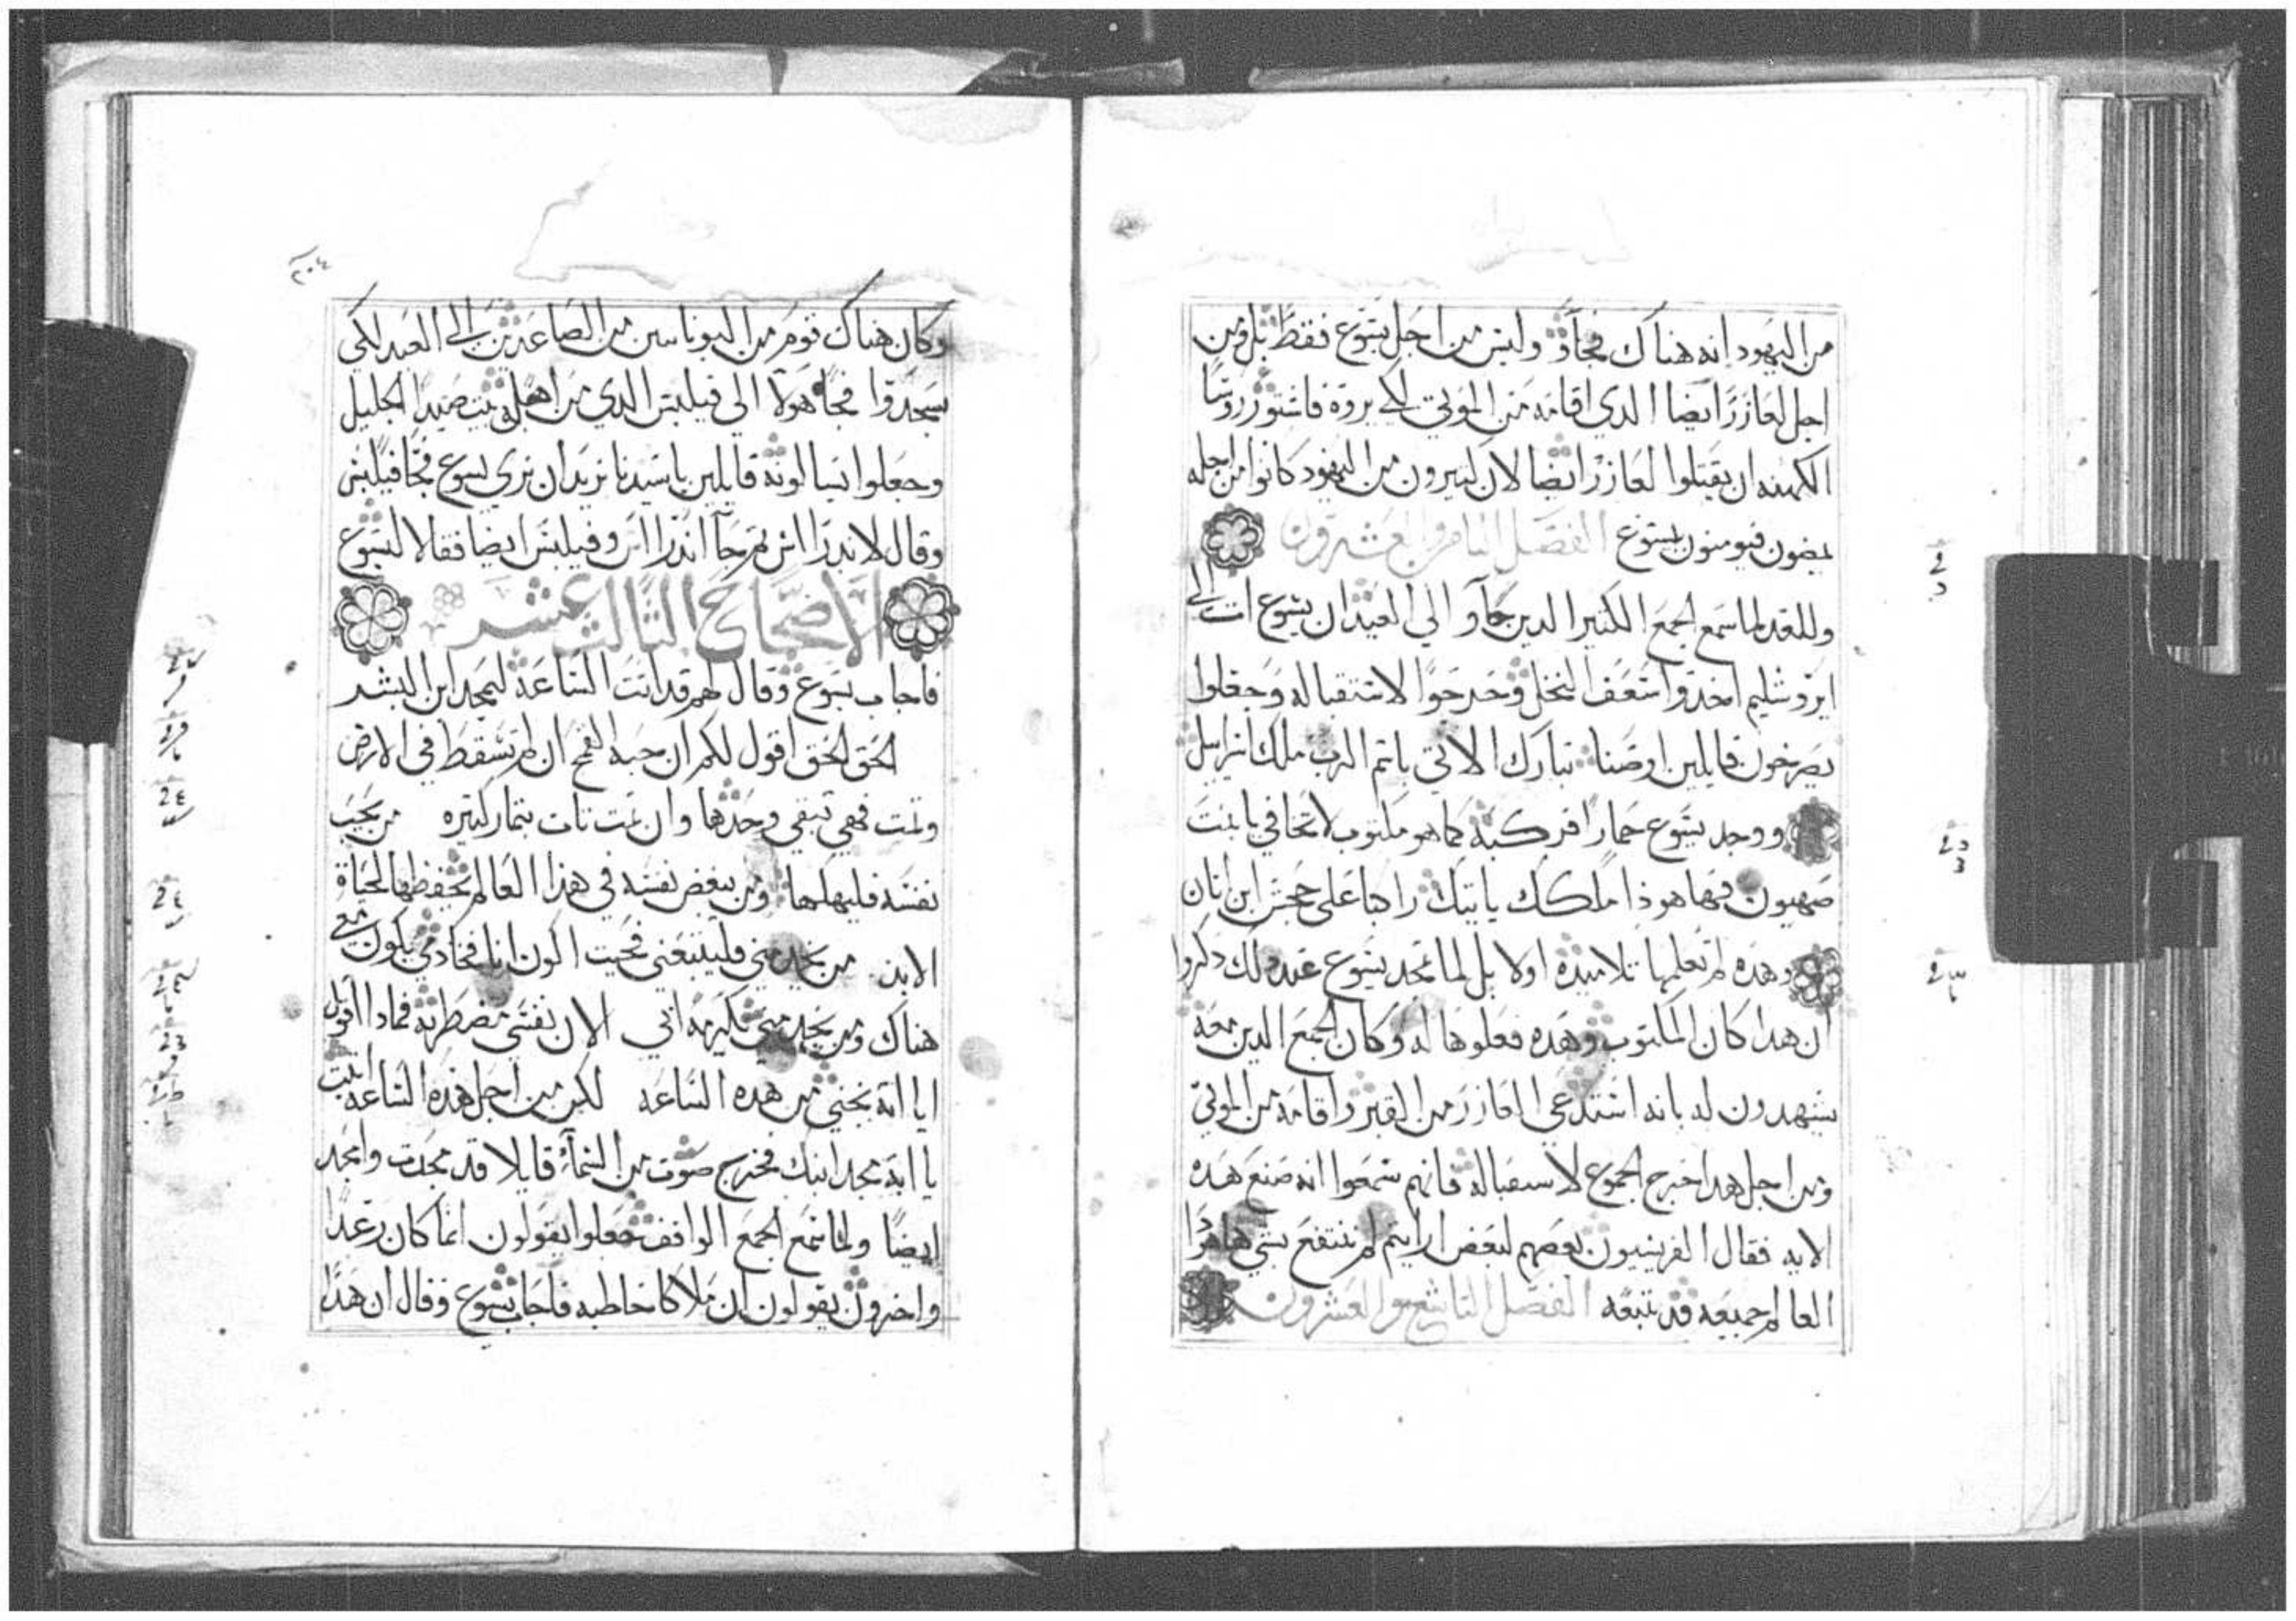 من اليهود انه هناك فجآو وليس من اجل يسوع فقط بل ومن
اجل لعازر ايضا الدي اقامه من الموتى لكي يروه فاشتور روسا
الكهنه ان يقتلوا لعازر ايضا لان كثيرون من اليهود كانوا من اجله
يمضون فيومنون بيسوع الفصل الثامن والعشرون
وللغد لما سمع الجمع الكثير الدين جآو الي العيد ان يسوع ات الى
ايروشليم اخدوا سعف النخل وخرجوا لاستقباله وجعلوا
يصرخون قايلين اوصنا تبارك الاتي باسم الرب ملك اسراييل
ووجد يسوع حمارا فركبه كما هو مكتوب لا تخافي يا بنت
صهيون فها هو ذا ملكك ياتيك راكبا على جحش ابن اتان
وهده لم تعلمها تلاميده اولا بل لما تمجد يسوع عند دلك دكروا
ان هدا كان المكتوب وهده فعلوها له وكان الجمع الدين معه
يشهدون له بانه استدعى العازر من القبر واقامه من الموتى
ومن اجل هدا خرج الجموع لاستقباله فانهم سمعوا انه صنع هده
الايه فقال الفريسيون بعضهم لبعض ارايتم لم ننتفع بشي هاهودا
العالم جميعه قد تبعه الفصل التاسع والعشرون
٢٠٤
وكان هناك قوم من اليونانيين من الصاعدين الى العيد لكي
يسجدوا فجآ هولا الى فيلبس الدي من اهل بيت صيدا الجليل
وجعلوا يسالونه قايلين يا سيدنا نريد ان نري يسوع فجا فيلبس
وقال لاندراس ثم جآ اندراس وفيلبس ايضا فقالا ليسوع
الاصحاح الثالث عشر
فاجاب يسوع وقال لهم قد اتت الساعة ليمجد ابن البشر
الحق الحق اقول لكم ان حبة القمح ان لم تسقط في الارض
وتمت فهي تبقي وحدها وان تمت تات بثمار كثيره من يحب
نفسه فليهلكها ومن يبغض نفسه في هذا العالم يحفظها لحياة
الابد من يخدمني فليتبعني فحيت اكون انا فخادمي يكون معي
هناك ومن يخدمني يكرمه ابي الان نفسي مضطربة فمادا اقول
ايا ابة نجني من هده الساعه لكن من اجل هده الساعه اتيت
يا ابة مجد ابنك فخرج صوت من السمآ قايلا قد مجدت وامجد
ايضا ولما سمع الجمع الواقف جعلوا يقولون انما كان رعدا
واخرون يقولون ان ملاكا خاطبه فاجاب يسوع وقال ان هدا